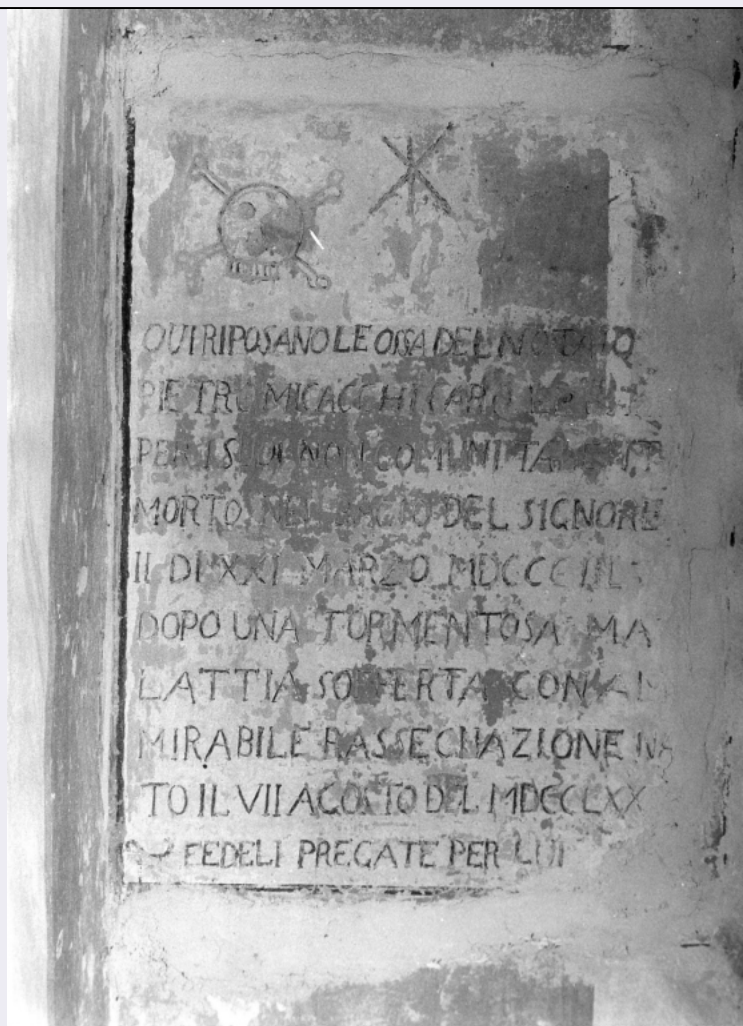 QUI RIPOSANO LE OSSA DEL NOTAIO
PIETRO MICACCHI CARO
PER I SUOI NON COMUNI
MORTO NEL BACIO DEL SIGNORE
IL DI XXI MARZO
DOPO UNA TORMENTOSA MA
LATTIA SOFFERTA CON AM
MIRABILE RASSEGNAZIONE NA
TO IL VII AGOSTO DEL MDCCLXX
FEDELI PREGATE PER LUI